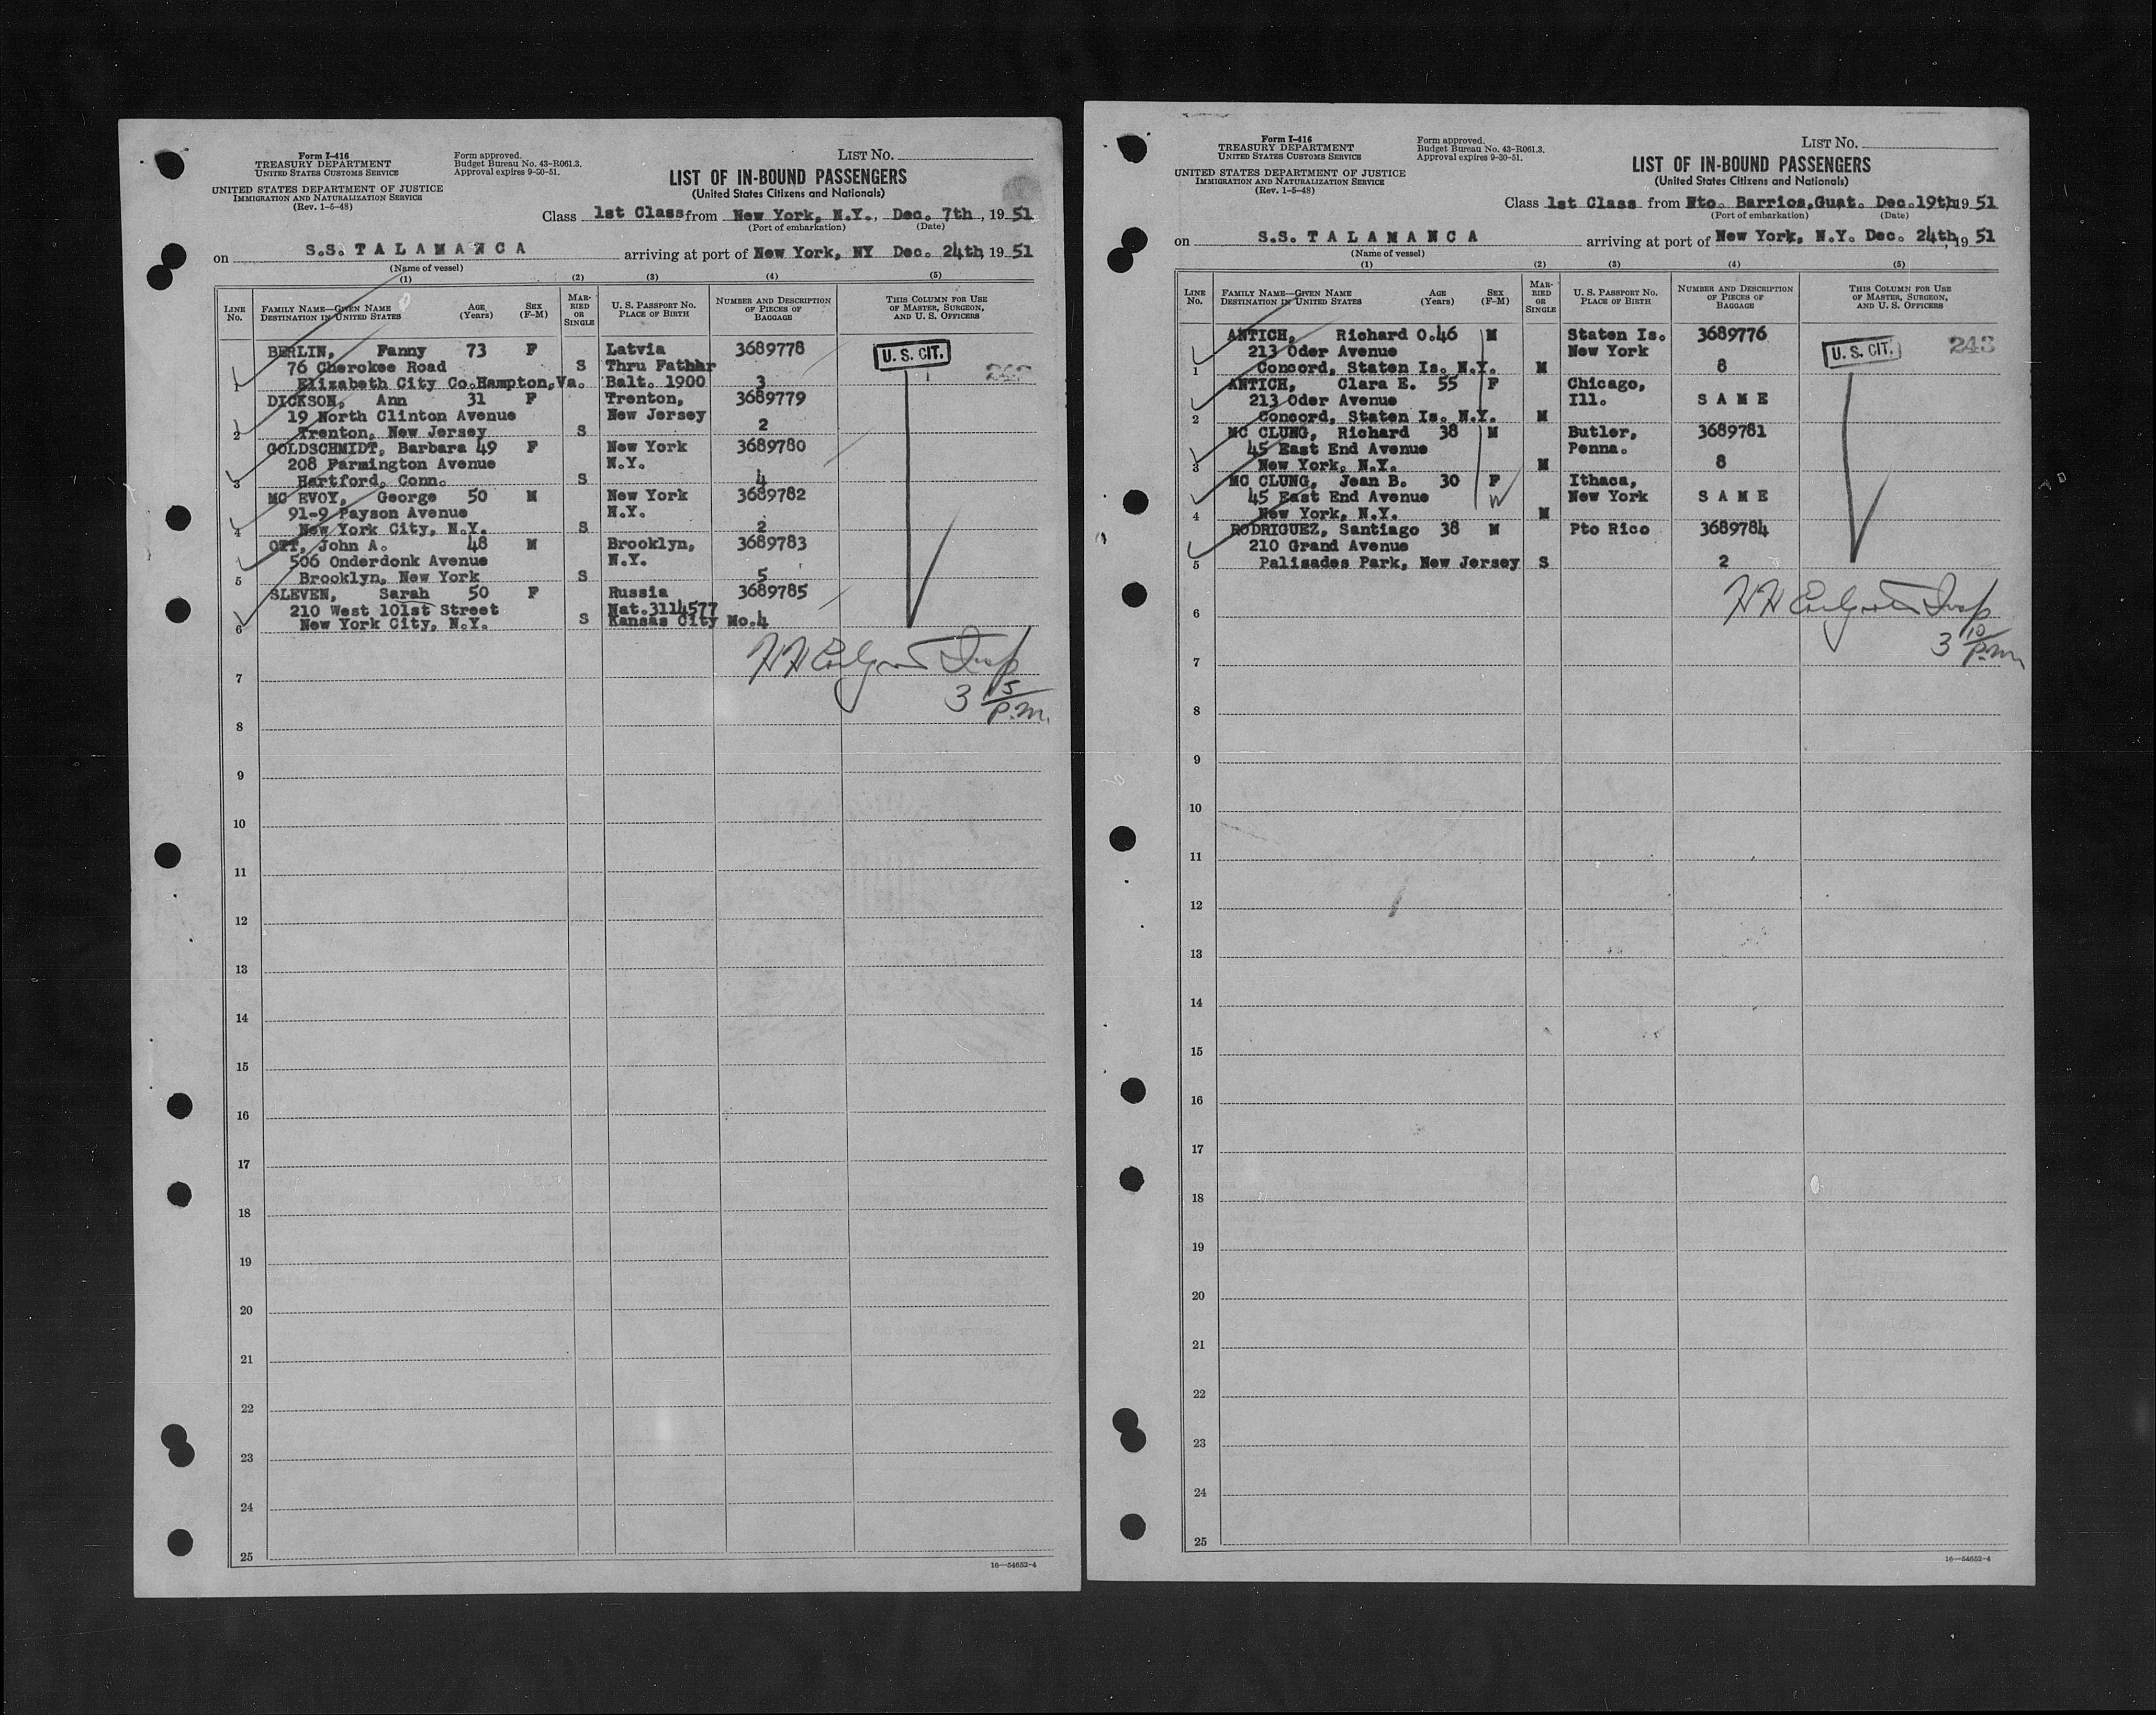 Form I-416
TREASURY DEPARTMENT
UNITED STATES CUSTOMS SERVICE
UNITED STATES DEPARTMENT OF JUSTICE
IMMIGRATION AND NATURALIZATION SERVICE
(Rev. 1-5-48)
Form approved.
Budget Bureau No. 43-R061.3.
Approval expires 9-30-51.
LIST NO.
LIST OF IN-BOUND PASSENGERS
(United States Citizens and Nationals)
Class 1st Class from New York, N.Y., Dec. 7th, 1951
(Port of embarkation) (Date)
on S.S. TALAMANCA arriving at port of New York, NY Dec. 24th, 1951
(Name of vessel)
(1) (2) (3) (4) (5)
LINE No. FAMILY NAME—GIVEN NAME DESTINATION IN UNITED STATES AGE (Years) SEX (F-M) MARRIED OR SINGLE U. S. PASSPORT NO. PLACE OF BIRTH NUMBER AND DESCRIPTION OF PIECES OF BAGGAGE THIS COLUMN FOR USE OF MASTER, SURGEON, AND U. S. OFFICERS
BERLIN, Fanny 73 F Latvia 3689778 U. S. CIT.
76 Cherokee Road S Thru Fathhr
1 Elizabeth City Co.Hampton,Va. Balt. 1900 3
DICKSON, Ann 31 F Trenton, 3689779
19 North Clinton Avenue New Jersey
2 Trenton, New Jersey S 2
GOLDSCHMIDT, Barbara 49 F New York 3689780
208 Farmington Avenue N.Y.
3 Hartford, Conn. S 4
MC EVOY, George 50 M New York 3689782
91-9 Payson Avenue N.Y.
4 New York City, N.Y. S 2
OTT, John A. 48 M Brooklyn, 3689783
506 Onderdonk Avenue N.Y.
5 Brooklyn, New York S 5
SLEVEN, Sarah 50 F Russia 3689785
210 West 101st Street Nat.3114577
6 New York City, N.Y. S Kansas City Mo.4
Insp
7
3 15 P.M.
8
9
10
11
12
13
14
15
16
17
18
19
20
21
22
23
24
25
16—54652-4
Form I-416
TREASURY DEPARTMENT
UNITED STATES CUSTOMS SERVICE
UNITED STATES DEPARTMENT OF JUSTICE
IMMIGRATION AND NATURALIZATION SERVICE
(Rev. 1-5-48)
Form approved.
Budget Bureau No. 43-R061.3.
Approval expires 9-30-51.
LIST NO.
LIST OF IN-BOUND PASSENGERS
(United States Citizens and Nationals)
Class 1st Class from Pto. Barrios,Guat. Dec.19th, 1951
(Port of embarkation) (Date)
on S.S. TALAMANCA arriving at port of New York, N.Y. Dec. 24th, 1951
(Name of vessel)
(1) (2) (3) (4) (5)
LINE No. FAMILY NAME—GIVEN NAME DESTINATION IN UNITED STATES AGE (Years) SEX (F-M) MARRIED OR SINGLE U. S. PASSPORT NO. PLACE OF BIRTH NUMBER AND DESCRIPTION OF PIECES OF BAGGAGE THIS COLUMN FOR USE OF MASTER, SURGEON, AND U. S. OFFICERS
ANTICH, Richard O.46 M Staten Is. 3689776
213 Oder Avenue New York U. S. CIT. 243
1 Concord, Staten Is. N.Y. M 8
ANTICH, Clara E. 55 F Chicago,
213 Oder Avenue Ill. SAME
2 Concord, Staten Is. N.Y. M
MC CLUNG, Richard 38 M Butler, 3689781
45 East End Avenue Penna.
3 New York, N.Y. M 8
MC CLUNG, Jean B. 30 F Ithaca,
45 East End Avenue New York SAME
4 New York, N.Y. M
RODRIGUEZ, Santiago 38 M Pto Rico 3689784
210 Grand Avenue
5 Palisades Park, New Jersey S 2
6 Insp
3 10 P.M.
7
8
9
10
11
12
13
14
15
16
17
18
19
20
21
22
23
24
25
16—54652-4